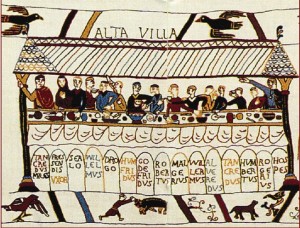 ALTA VILLA
TAN
CRE
DUS
MILES
FRES
SEN
DIS
UXOR
SER
LO
WIL
LEL
MUS
DRO
GO
HUM
FRI
DUS
GO
DE
FRI
DUS
RO
BER
TUS
MAL
GE
RIUS
WIL
LER
MUS
AL
VE
RE
DUS
TAN
CRE
DUS
HUM
BER
TUS
RO
GE
RIUS
HOS
PES